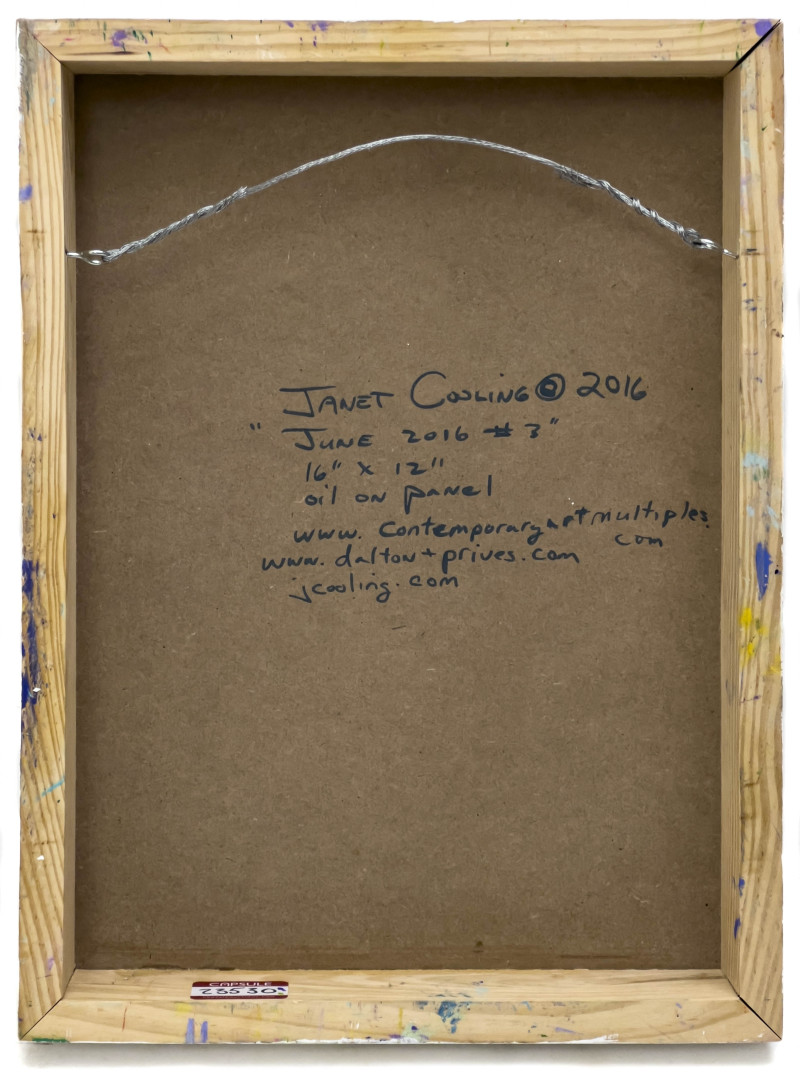 JANET COOLING © 2016
"JUNE 2016 #3"
16" x 12"
oil on panel
www.contemporaryartmultiples.
com
www.dalton+prives.com
jcooling.com
CAPSULE